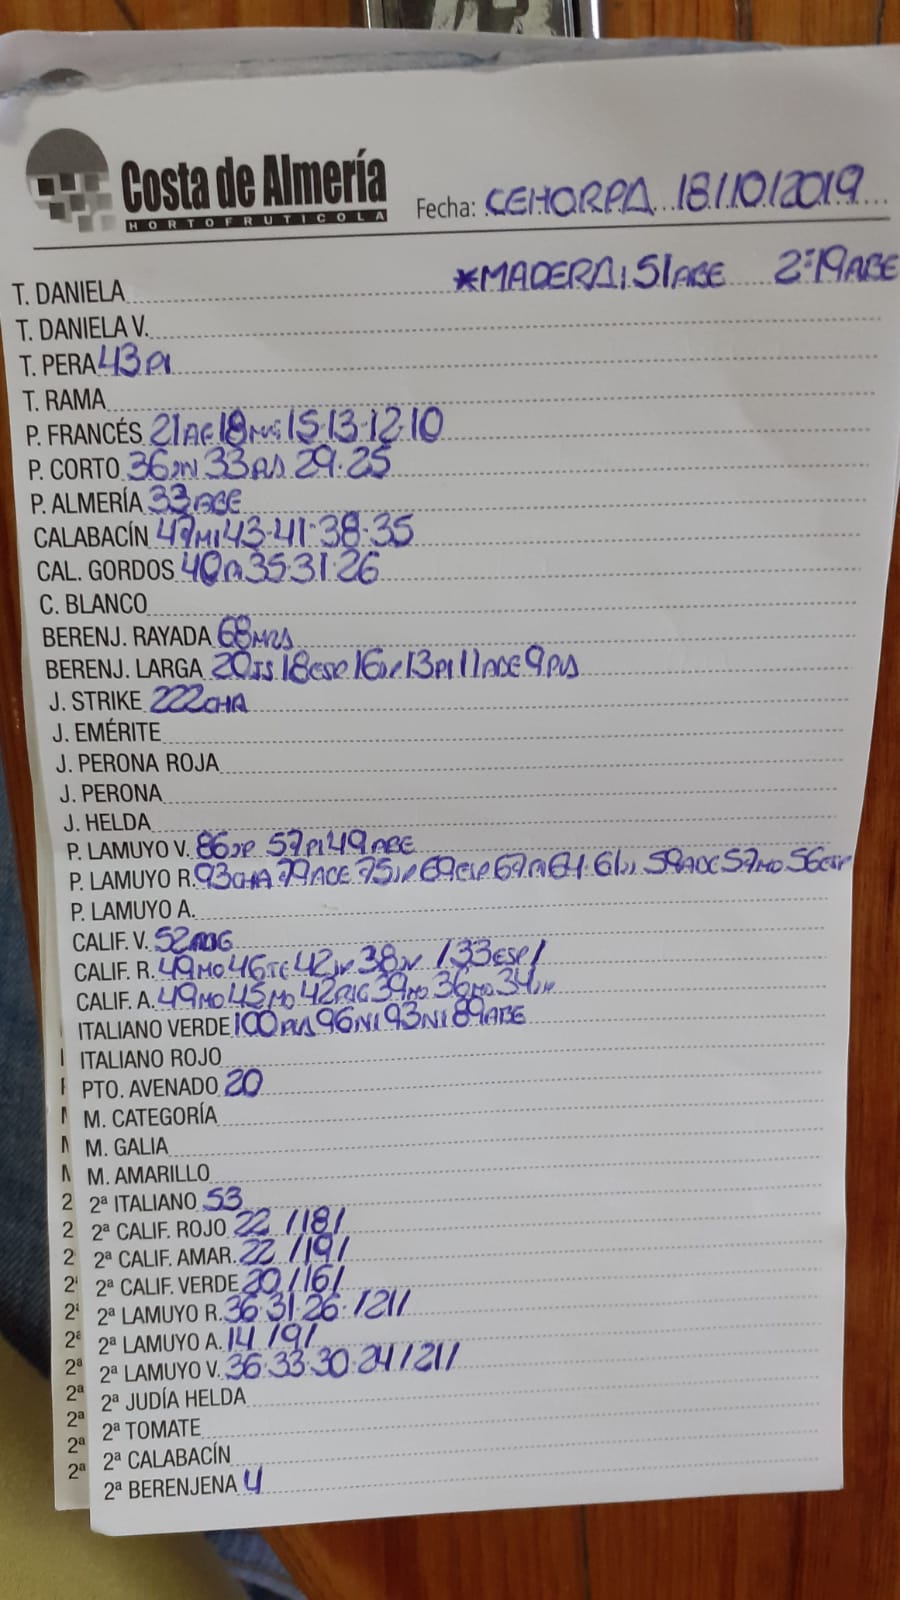 Costa de Almería
HORTOFRUTICOLA
Fecha: CEHORPA 18/10/2019
T. DANIELA *MADERA: 51ABE 2ª:19ABE
T. DANIELA V.
T. PERA 43PI
T. RAMA
P. FRANCÉS 21AG 18 15·13·12·10
P. CORTO 36JN 33PLS 29·25
P. ALMERÍA 33ABE
CALABACÍN 47MI 43·41·38·35
CAL. GORDOS 40PI 35·31·26
C. BLANCO
BERENJ. RAYADA 68
BERENJ. LARGA 20JS 18ESP 16JP 13PI 11ACE 9PLS
J. STRIKE 222CHA
J. EMÉRITE
J. PERONA ROJA
J. PERONA
J. HELDA
P. LAMUYO V. 86JP 57PI 49ABE
P. LAMUYO R. 93CHA 79ACE 75JP 69ESP 67PI 64·61JJ 59ACE 57MO 56ESP
P. LAMUYO A.
CALIF. V. 52
CALIF. R. 49MO 46TE 42JP 38JV /33ESP/
CALIF. A. 49MO 45MO 42 39MO 36MO 34JP
ITALIANO VERDE 100PLS 96NI 93NI 89ABE
ITALIANO ROJO
PTO. AVENADO 20
M. CATEGORÍA
M. GALIA
M. AMARILLO
2ª ITALIANO 53
2ª CALIF. ROJO 22 /18/
2ª CALIF. AMAR. 22 /19/
2ª CALIF. VERDE 20 /16/
2ª LAMUYO R. 36·31·26·/21/
2ª LAMUYO A. 14 /9/
2ª LAMUYO V. 36·33·30·24/21/
2ª JUDÍA HELDA
2ª TOMATE
2ª CALABACÍN
2ª BERENJENA 4